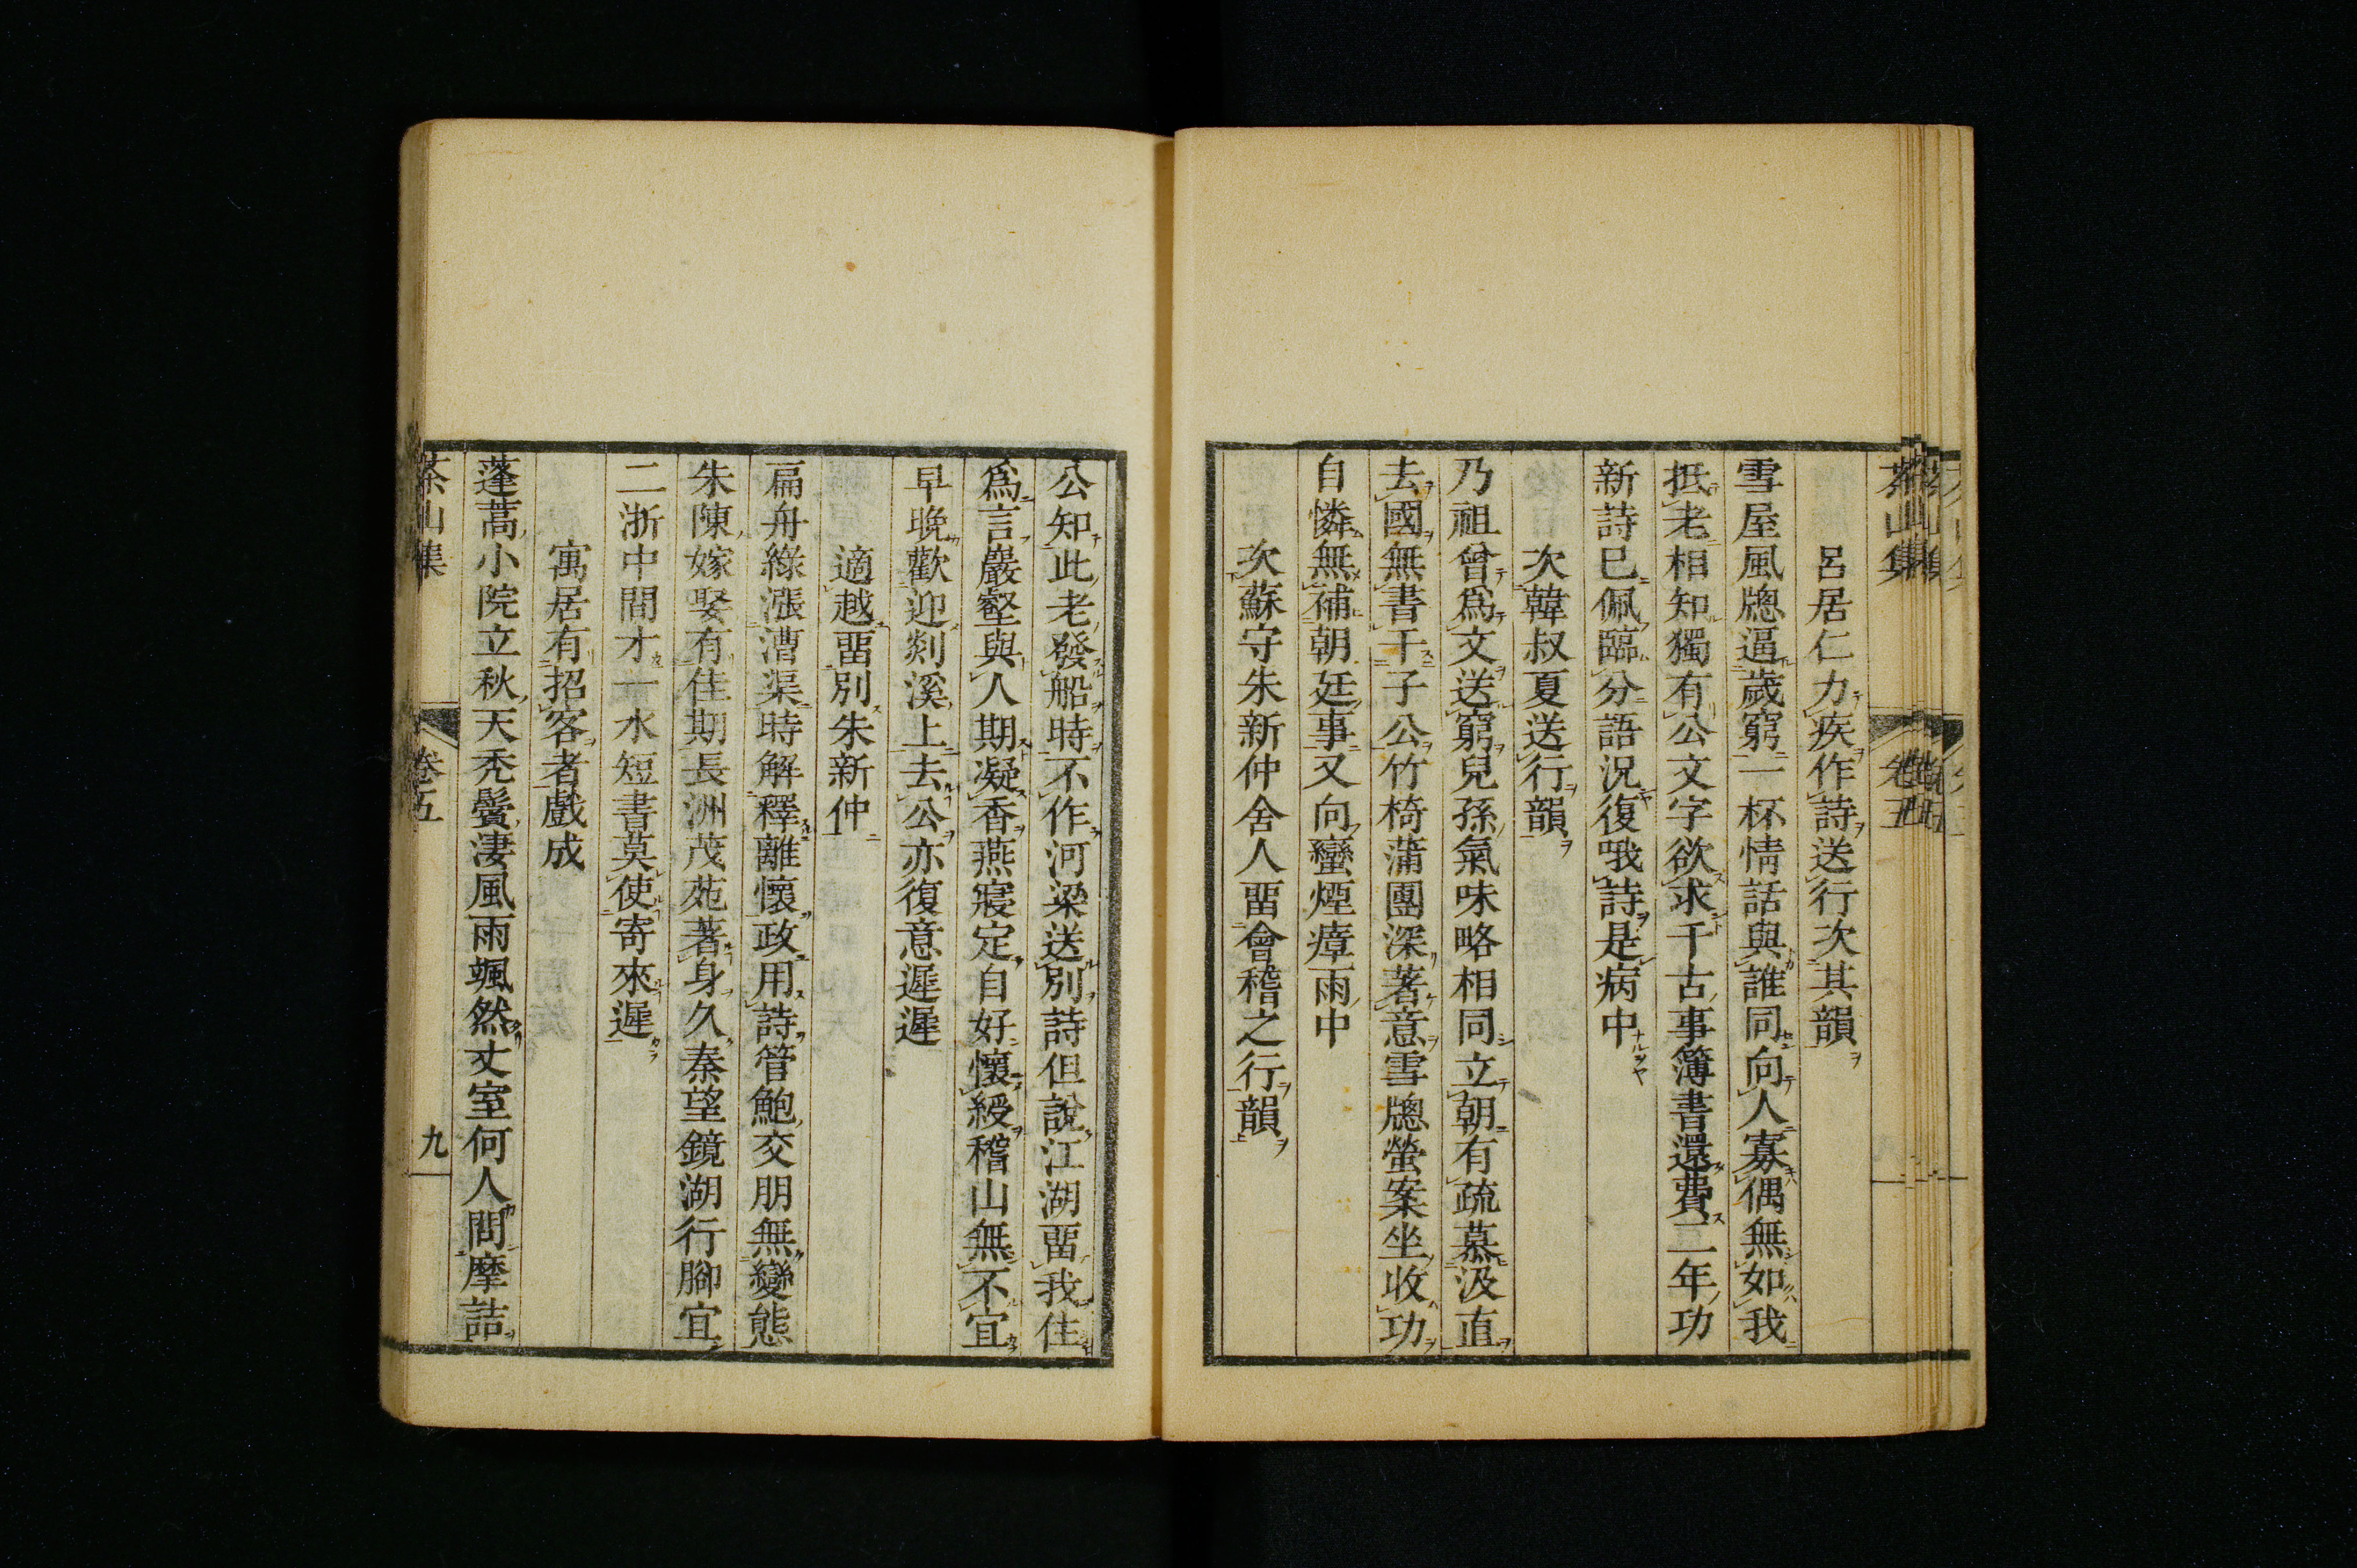 茶山集 卷五
呂居仁力疾作詩送行次其韻
雪屋風牕逼歲窮一杯情話與誰同向人寡偶無如我
抵老相知獨有公文字欲求千古事簿書還費二年功
新詩已佩臨分語況復哦詩是病中
次韓叔夏送行韻
乃祖曾爲文送窮兒孫氣味略相同立朝有疏慕汲直
去國無書干子公竹椅蒲團深著意雪牕螢案坐收功
自憐無補朝廷事又向蠻煙瘴雨中
次蘇守朱新仲舍人畱會稽之行韻
公知此老發船時不作河梁送別詩但說江湖畱我住
爲言巖壑與人期凝香燕寢定自好懷綬稽山無不宜
早晚歡迎剡溪上去公亦復意遲遲
適越畱別朱新仲
扁舟綠漲漕渠時解釋離懷政用詩管鮑交朋無變態
朱陳嫁娶有佳期長洲茂苑著身久秦望鏡湖行腳宜
二浙中間才一水短書莫使寄來遲
寓居有招客者戲成
蓬蒿小院立秋天禿鬢淒風雨颯然丈室何人問摩詰
茶山集 卷五 九